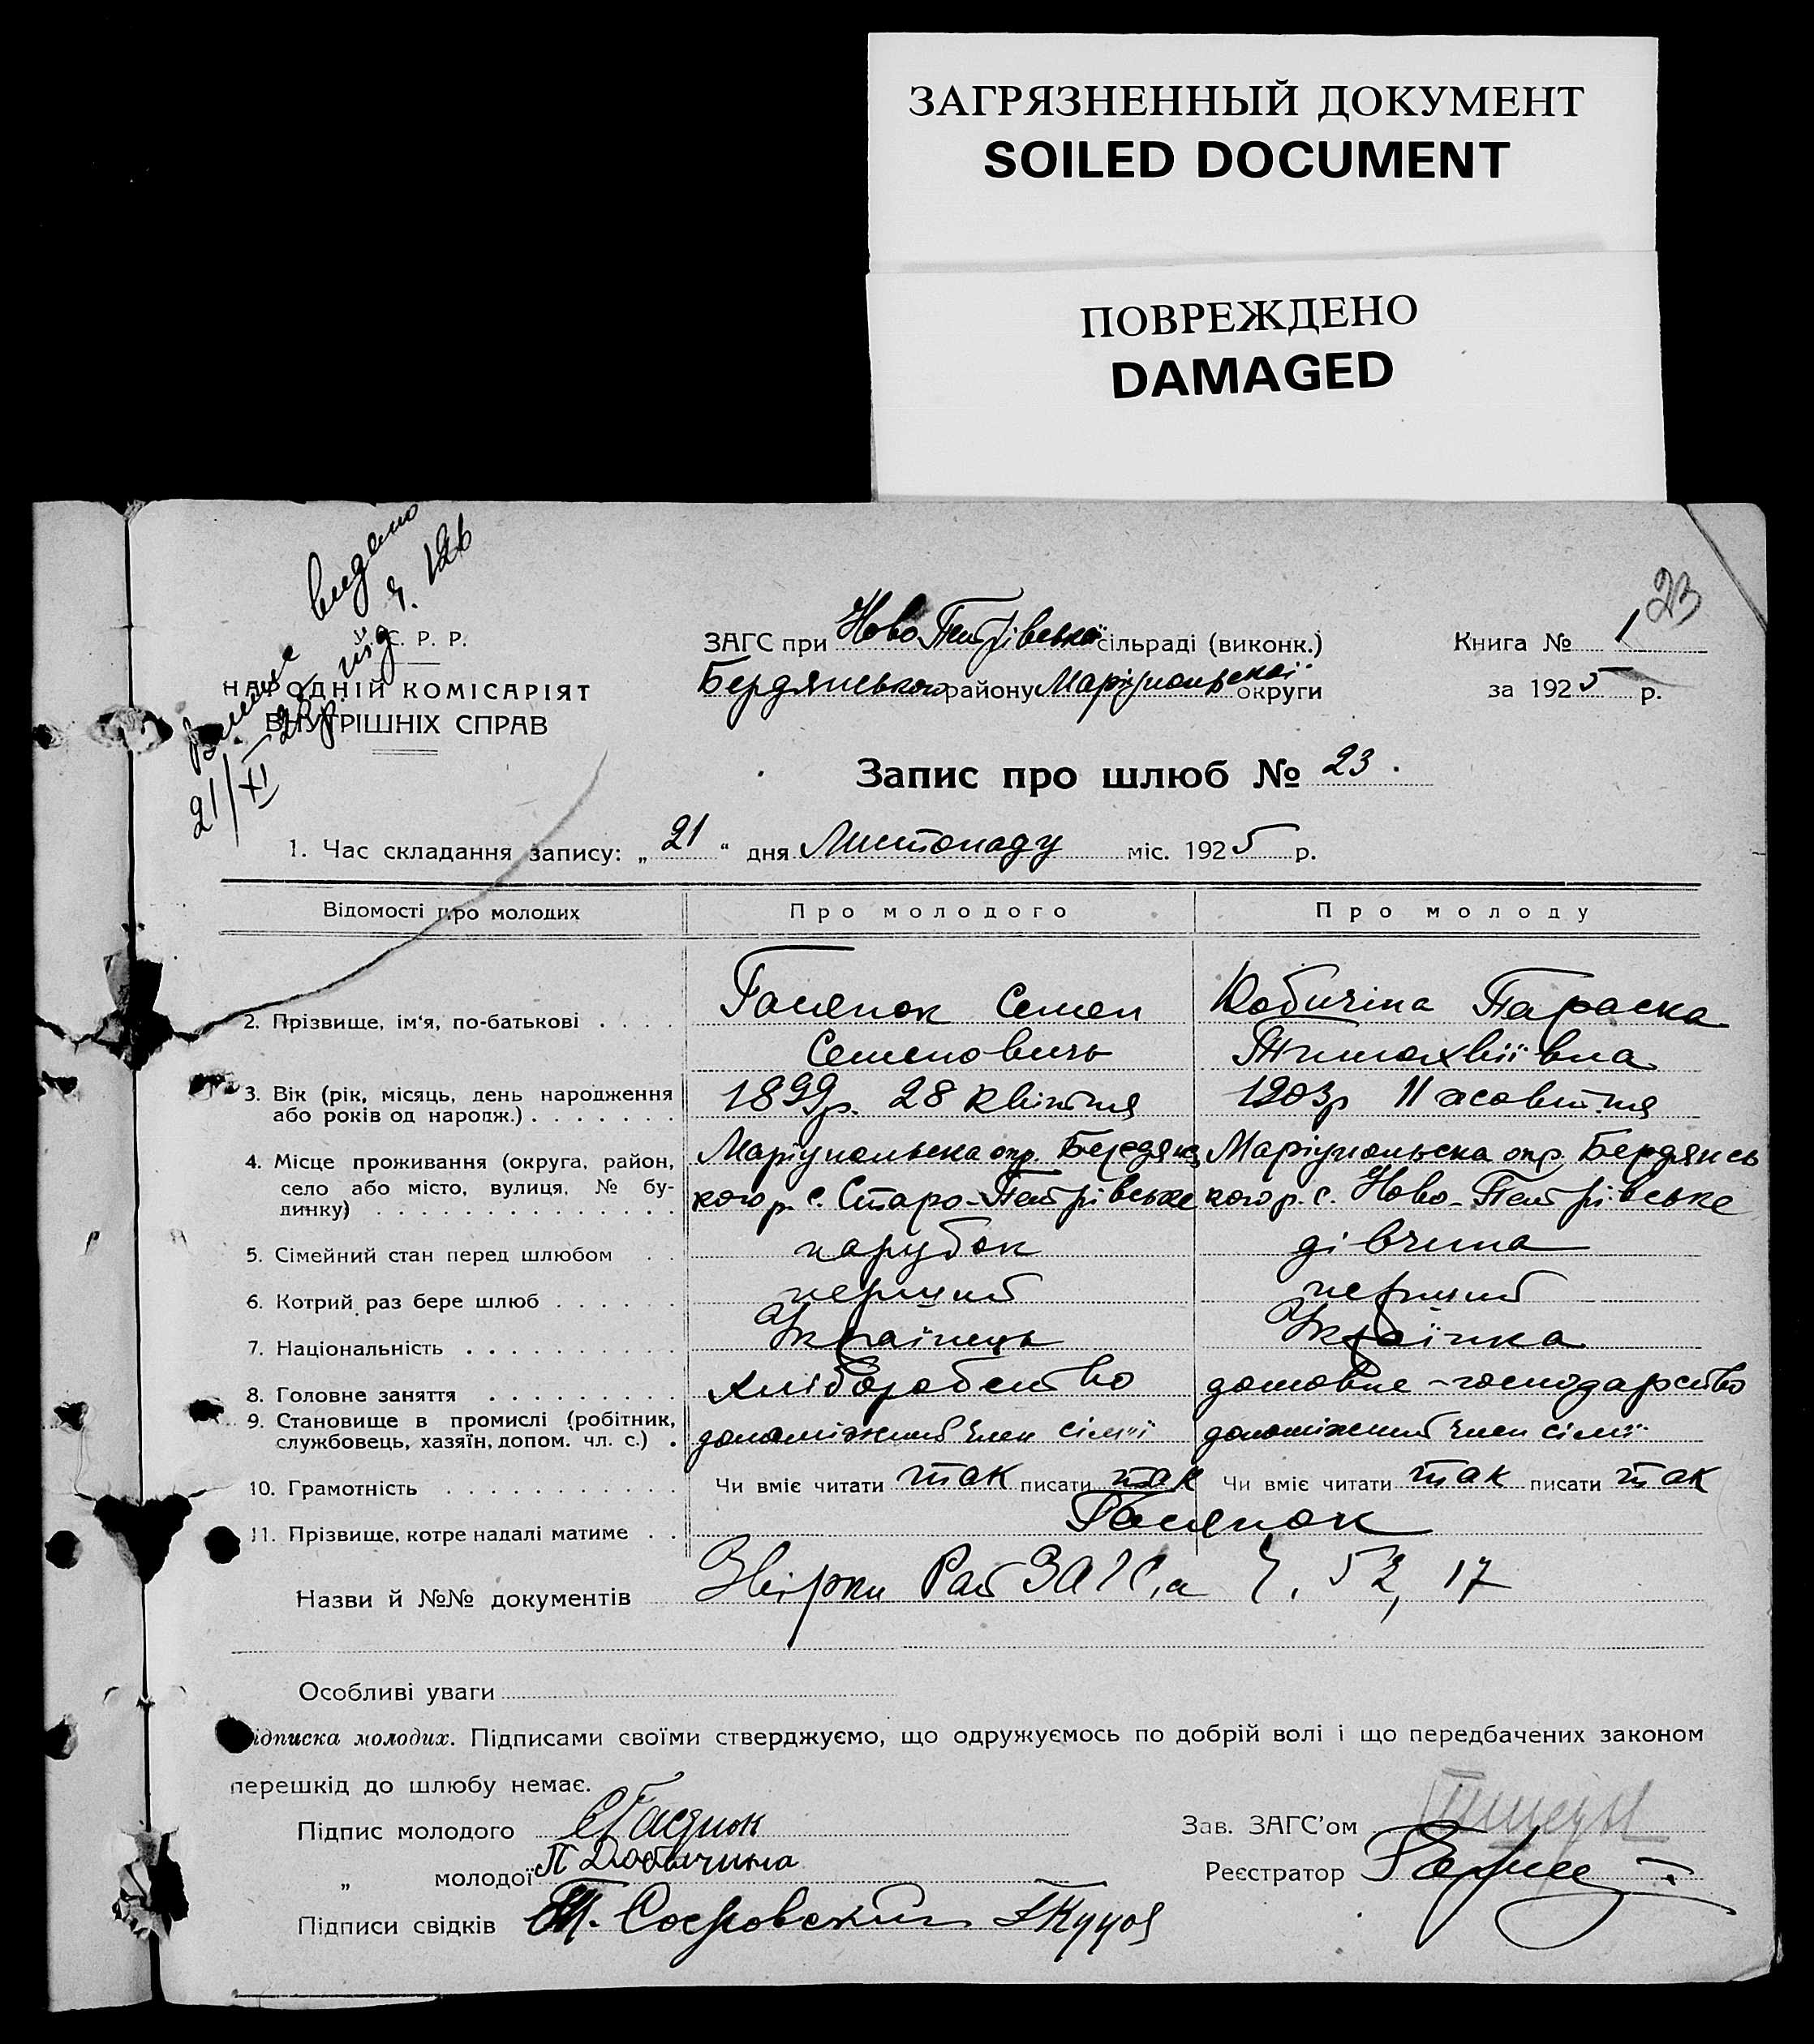 ЗАГРЯЗНЕННЫЙ ДОКУМЕНТ
SOILED DOCUMENT
ПОВРЕЖДЕНО
DAMAGED
23
Виписа видано
21/XI 25 р. під ч. 126
У. С. Р. Р.
НАРОДНІЙ КОМІСАРІЯТ
ВНУТРІШНІХ СПРАВ
ЗАГС при Ново Петрівській сільраді (виконк.)
Бердянського району Маріупольскої округи
Книга № 1
за 1925 р.
Запис про шлюб № 23.
1. Час складання запису: „21“ дня Листопаду міс. 1925 р.
Відомості про молодих Про молодого Про молоду
2. Прізвище, ім'я, по-батькові . . . . Гасенок Семен Добичіна Параска
Семенович Тимохвіївна
3. Вік (рік, місяць, день народження
або років од народж.) . . . . . . . 1899р. 28 квітня 1903р 11 жовтня
4. Місце проживання (округа, район,
село або місто, вулиця, № бу-
динку) . . . . . . . . . . . . . . Маріупольска окр. Бердянс
кого р. с. Старо-Петрівське Маріупольска окр. Бердянсь
кого р. с. Ново-Петрівське
5. Сімейний стан перед шлюбом . . парубок дівчина
6. Котрий раз бере шлюб . . . . . . перший перший
7. Національність . . . . . . . . . . Українець Українка
8. Головне заняття . . . . . . . . . хліборобство домовне-господарство
9. Становище в промислі (робітник,
службовець, хазяїн, допом. чл. с.) . допоміжний член сімї допоміжний член сімї
10. Грамотність . . . . . . . . . . . Чи вміє читати так писати так Чи вміє читати так писати так
11. Прізвище, котре надалі матиме . . Гасенок
Назви й №№ документів Звірки Рай ЗАГС,а Ч. 52, 17
Особливі уваги
ідписка молодих. Підписами своїми стверджуємо, що одружуємось по добрій волі і що передбачених законом
перешкід до шлюбу немає.
Підпис молодого С Гасянок
„ молодої П Добычина
Підписи свідків
Зав. ЗАГС'ом
Реєстратор